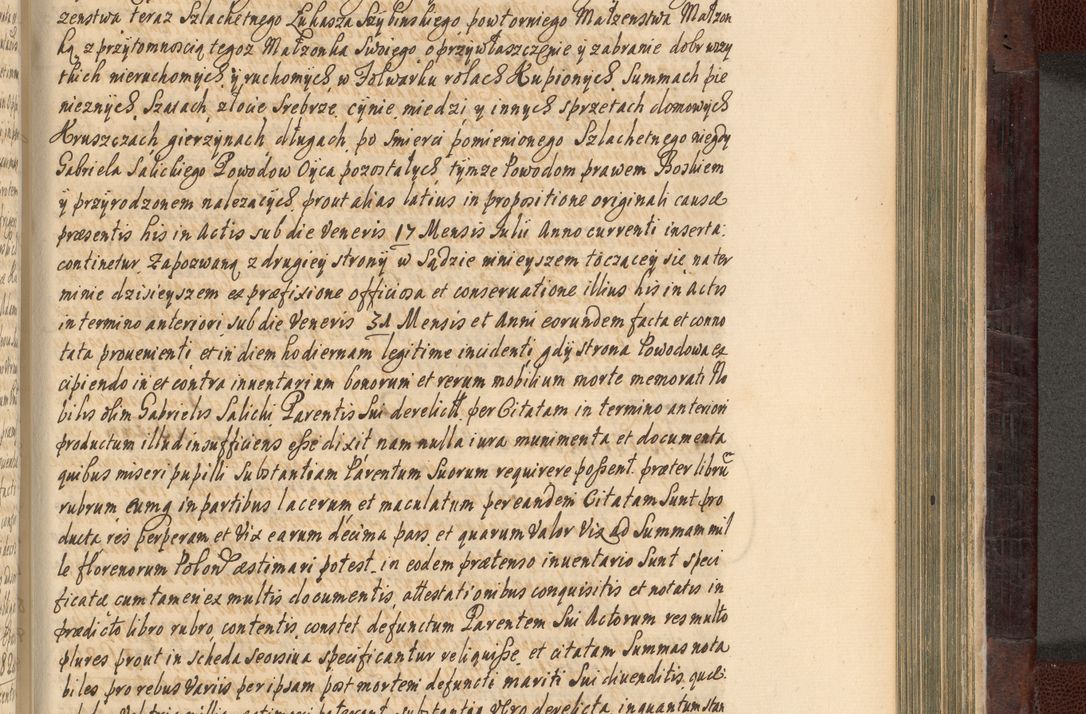 zenstwa teraz Szlachetnego Łukasza Szybinskiego powtorniego Małzenstwa Małzon
ką z przytomnoscią tegoz Małzonka Swoiego o przywłaszczenie y zabranie dobr wszy
tkich nieruchomych y ruchomych w Folwarku rolach Kupionych Summach pie
nieznych Szatach złocie Srebrze cynie miedzi y innych sprzetach domowych
Kruszczach gierzynach długach po smierci pomienionego Szlachetnego niegdy
Gabriela Salickiego Powodow Oyca pozostałych tymze Powodom prawem Boskiem
y przyrodzonem nalezących prout alias latius in propositione originali causæ
præsentis his in Actis sub die Veneris 17 Mensis Julii Anno currenti inserta
continetur Zapozwaną z drugiey strony w Sądzie mnieyszem toczącey się na ter
minie dzisieyszem ex præfixione officiosa et conservatione illius his in Actis
in termino anteriori sub die Veneris 31 Mensis et Anni eorundem facta et conno
tata provenienti et in diem hodiernam legitime incidenti gdy strona Powodowa ex
cipiendo in et contra inventarium bonorum et rerum mobilium morte memorati No
bilis olim Gabrielis Salicki Parentis Sui derelict per Citatam in termino anteriori
productum illud insufficiens esse dixit nam nulla iura munimenta et documenta
quibus miseri pupilli Substantiam Parentum Suorum requirere possent præter librū
rubrum eumq in partibus lacerum et maculatum per eandem Citatam Sunt pro
ducta res perperam et Vix earum decima pars et quarum Valor Vix ad Summam mil
le florenorum Polon æstimari potest in eodem prætenso inventario Sunt speci
ficatæ cum tamen ex multis documentis attestationibus conquisitis et notatis in
prædicto libro rubro contentis constet defunctum Parentem Sui Actorum res multo
plures prout in scheda seorsiva specificantur reliquisse et citatam Summas nota
biles pro rebus Variis per ipsam post mortem defuncti mariti Sui divenditis quæ
millia æstimari poterant substantia Vero derelicta in quantum